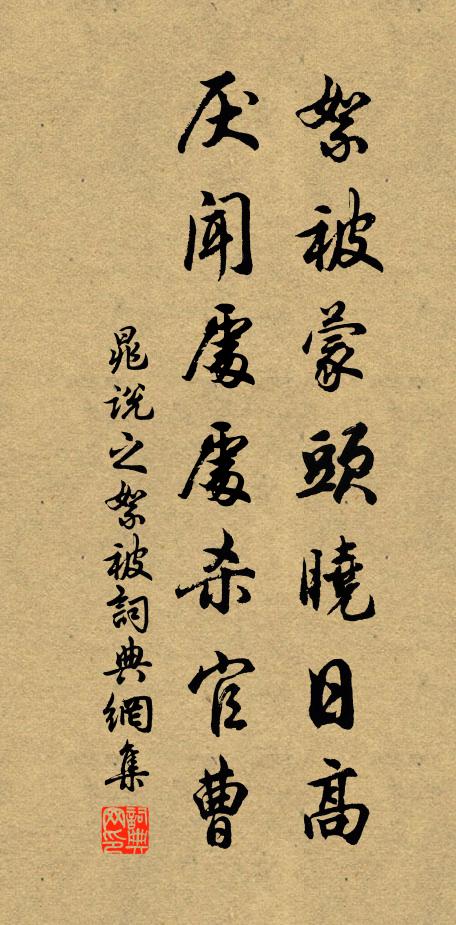 絮被蒙頭曉日高
厌聞處處杀官曹
晁說之絮被詞典網集
詞典网印